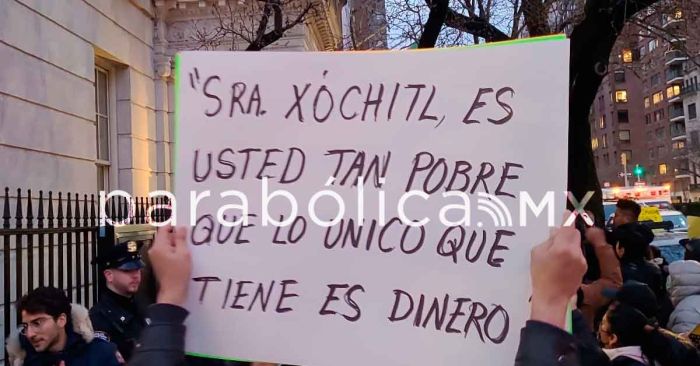 "SRA. XÓCHITL, ES
USTED TAN POBRE
parabólica.MX
QUE LO UNICO QUE
TIENE ES DINERO